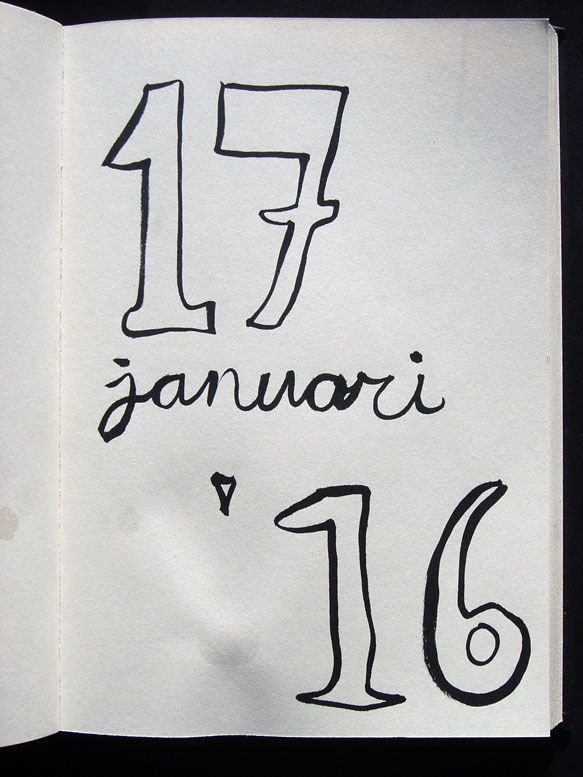 17
januari
'16